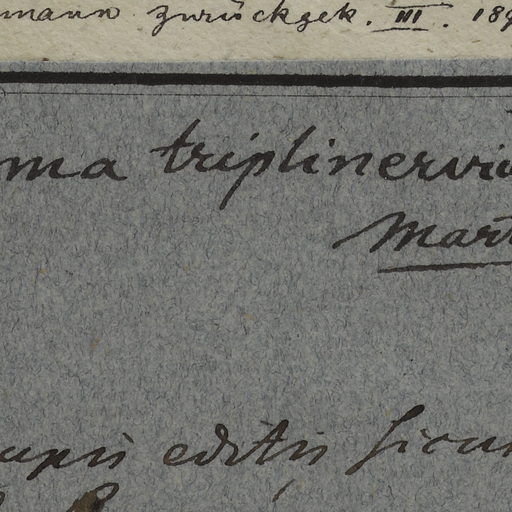 mann zurückgek. III. 189
ma triplinervi
Mart
upis editis